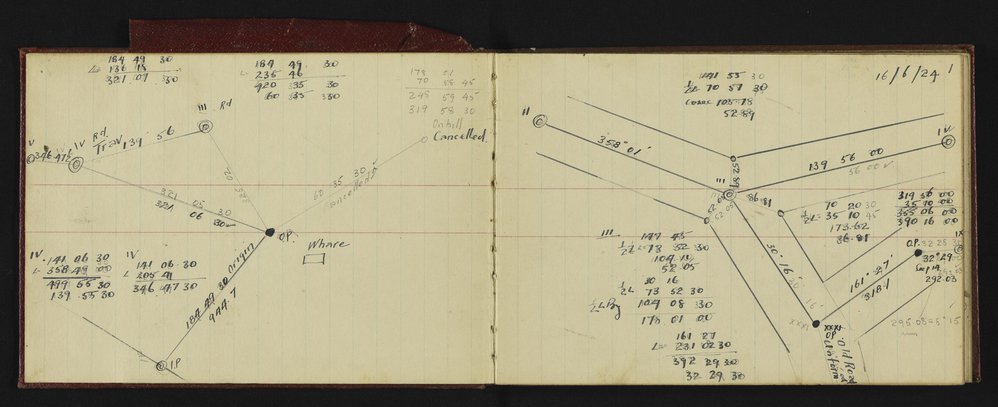 184 49 30
L= 136 18
321 07 30
184 49 30
L 235 46
420 35 30
60 35 30
178 01
70 58 45
248 59 45
319 58 30
III Rd
On hill
Cancelled
V
346.47½
IV
Rd.
Trav 139 56
321 05 30
321 06 30
60 35 30
Cancelled
O.P.
Whare
IV 141 06 30
L 358 49 00
499 55 30
139 55 30
IV 141 06 30
L 205 41
346 47 30
184 49 30 Origin
944.7
I.P.
141 55 30
½L 70 57 30
Cosec 105.78
52.89
16/6/24
1
II
358° 01'
IV
139 56 00
56 00
52.89
III
86.81
52.05
70 20 30
½L= 35 10 45
173.62
86.81
319 56 00
35 10 00
355 06 00
390 16 00
III
147 45
½L= 73 52 30
104.13
52.05
30 16
½L 73 52 30
½L Brg 104 08 30
178 01 00
161 27
L= 231 02 30
392 29 30
32 29 30
30° 16'
161° 27'
318.1
O.P.
IX
32° 29'
292.03
XXXI
XXXI
O.P.
Old Road
295.08